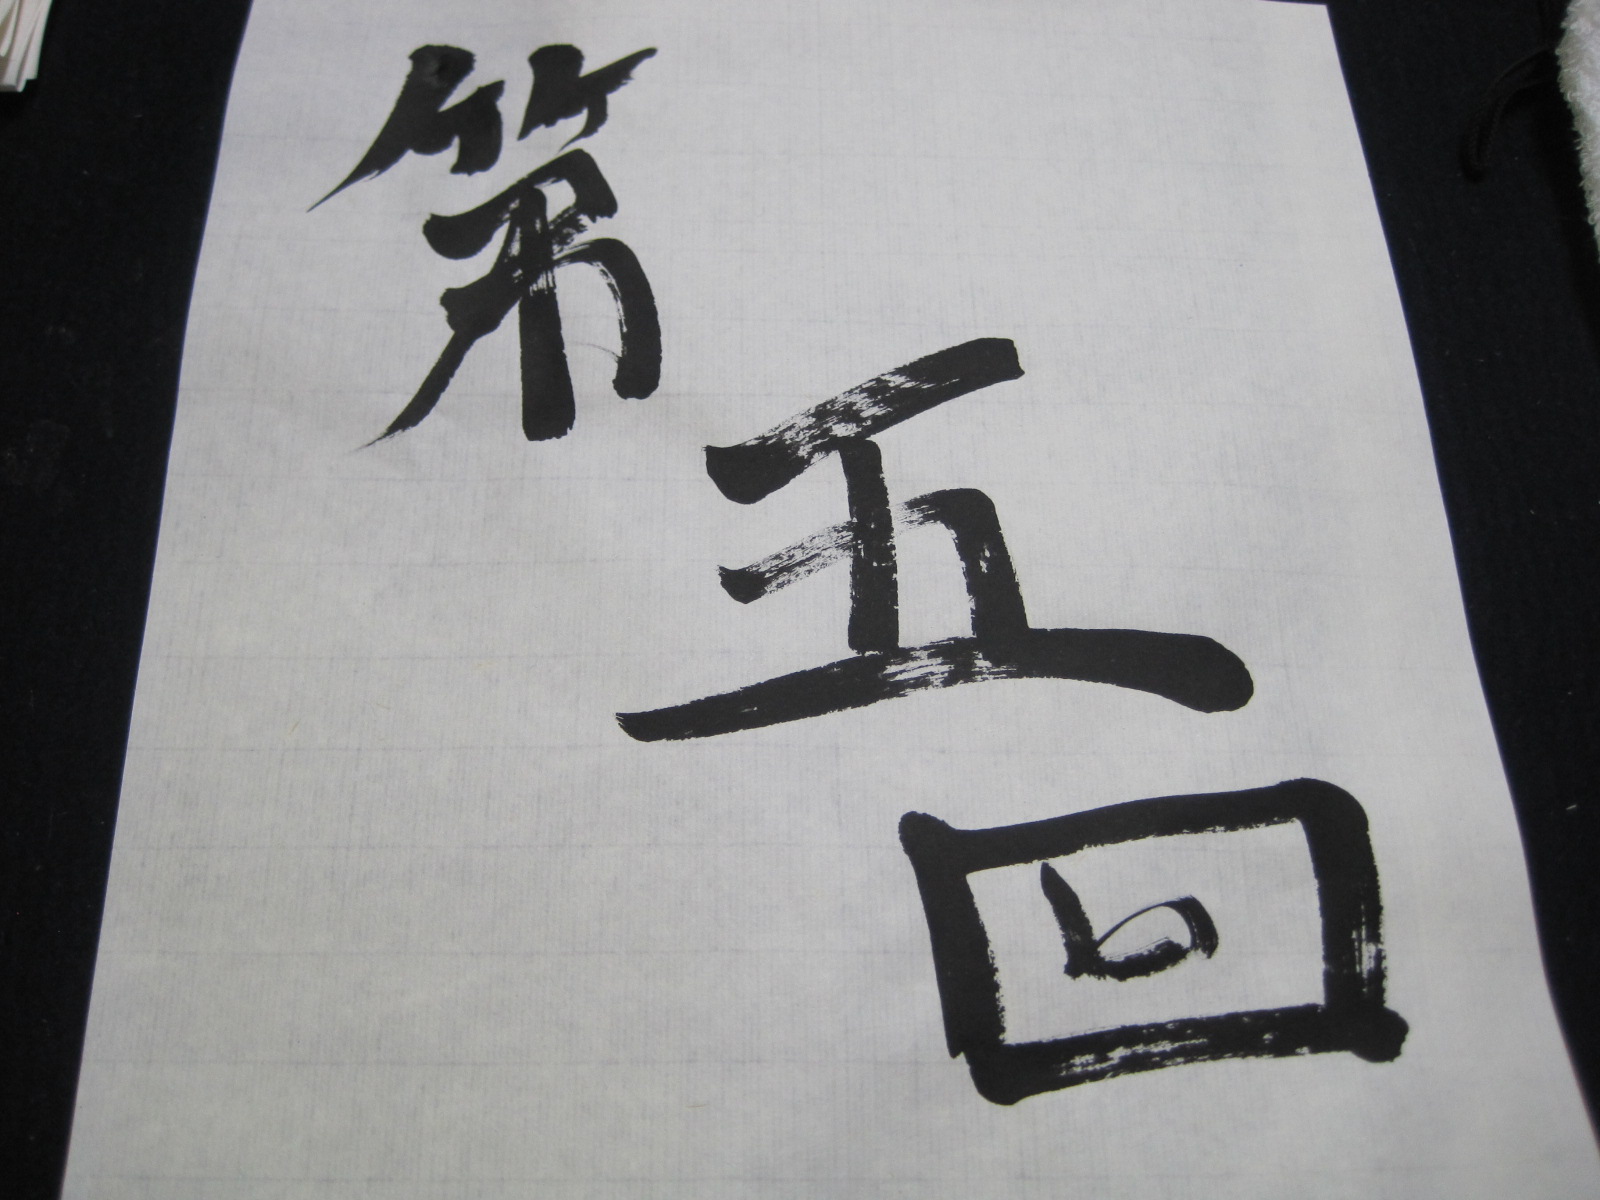 第五回